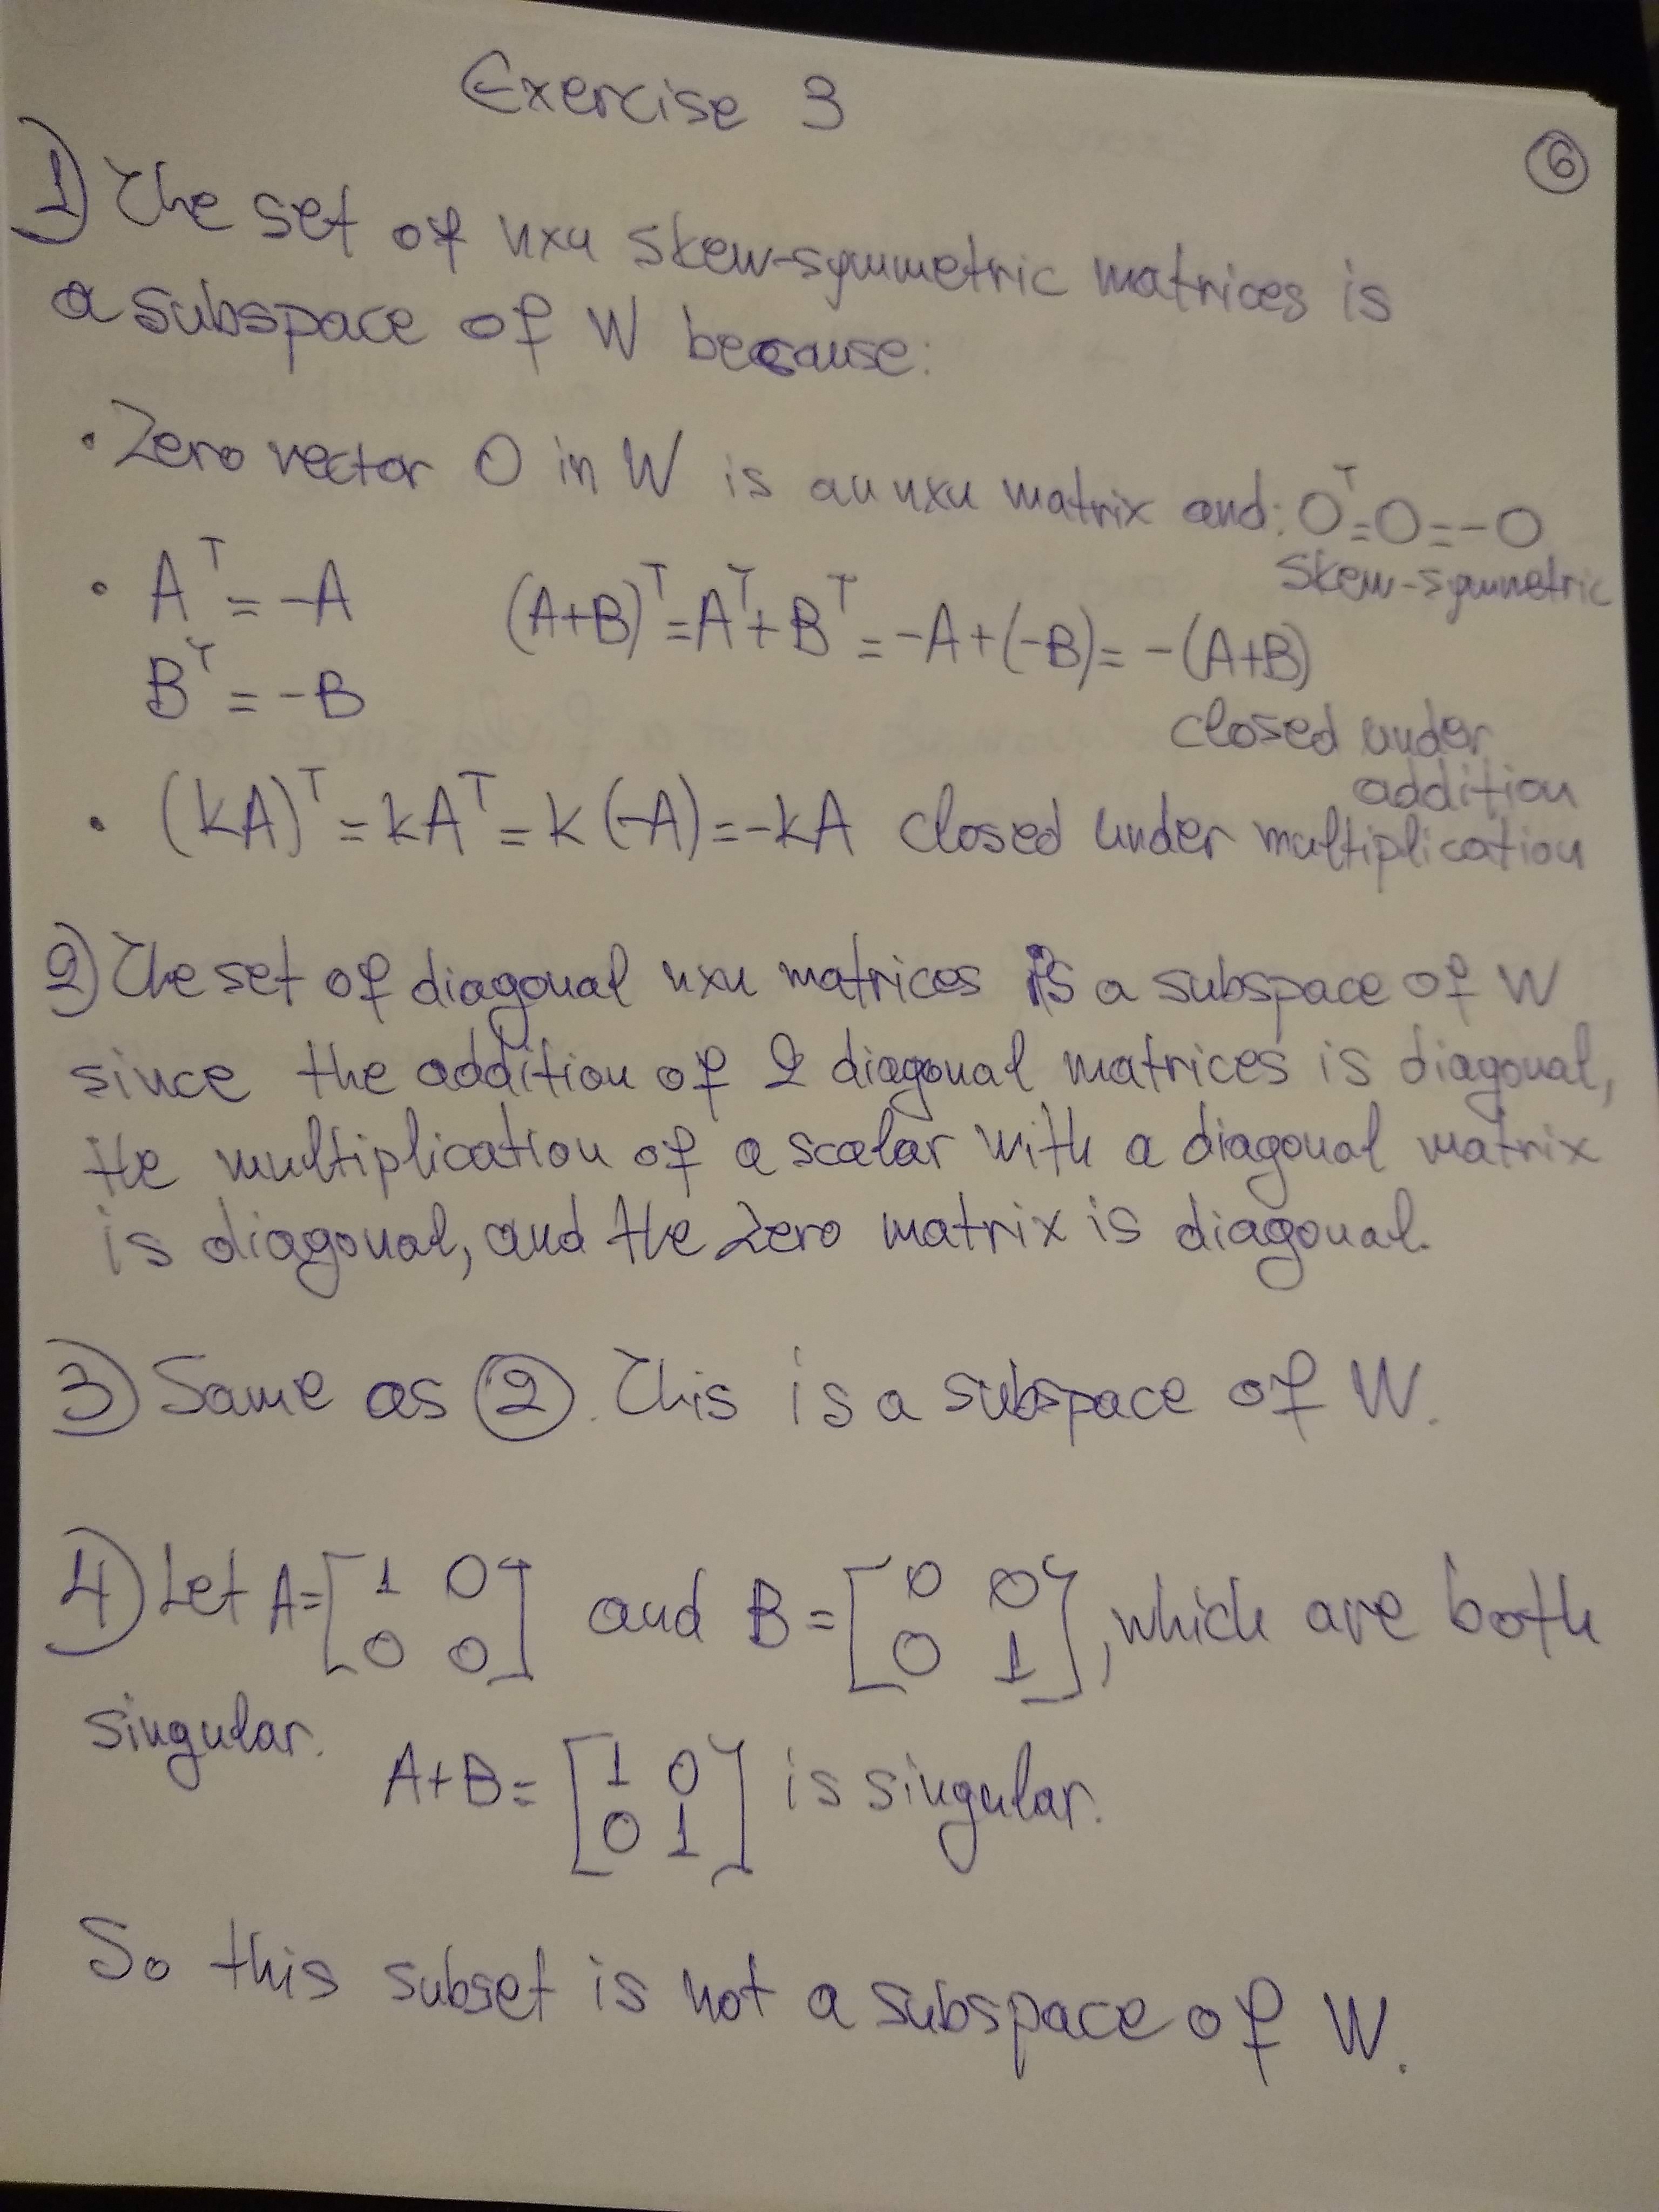 Exercise 3
6
1) The set of nxn skew-symmetric matrices is
a subspace of W because:
• Zero vector O in W is an nxn matrix and: O^T=O=-O
skew-symmetric
• A^T = -A (A+B)^T=A^T+B^T=-A+(-B)=-(A+B)
B^T = -B
closed under
addition
• (kA)^T = kA^T = k(-A)=-kA closed under multiplication
2) The set of diagonal nxn matrices is a subspace of W
since the addition of 2 diagonal matrices is diagonal,
the multiplication of a scalar with a diagonal matrix
is diagonal, and the zero matrix is diagonal.
3) Same as 2. This is a subspace of W.
4) Let A=[1 0 and B=[0 0], which are both
0 0] 0 1]
singular.
A+B= [1 0 is singular.
0 1]
So this subset is not a subspace of W.